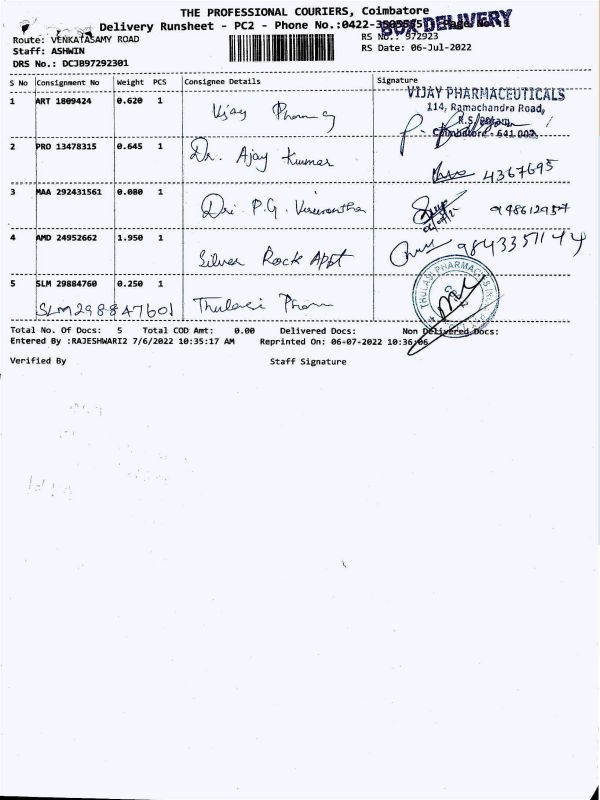 THE PROFESSIONAL COURIERS, Coimbatore
Delivery Runsheet - PC2 - Phone No.:0422-
BOX DELIVERY
Route: VENKATASAMY ROAD
RS No.: 972923
Staff: ASHWIN
RS Date: 06-Jul-2022
DRS No.: DCJB97292301
S No Consignment No Weight PCS Consignee Details Signature
VIJAY PHARMACEUTICALS
1 ART 1809424 0.620 1 Vijay
114, Ramachandra Road,
R.S. Puram,
Coimbatore - 641 002.
2 PRO 13478315 0.645 1 Dr. Ajay Kumar
4367695
3 MAA 292431561 0.080 1 P.G.
4 AMD 24952662 1.950 1 Silver Rock Appt
5 SLM 29884760 0.250 1 Thulasi Pharm
SLM298847601
THULASI PHARMACIES
Total No. Of Docs: 5 Total COD Amt: 0.00 Delivered Docs: Non Delivered Docs:
Entered By :RAJESHWARI2 7/6/2022 10:35:17 AM Reprinted On: 06-07-2022 10:36:06
Verified By Staff Signature